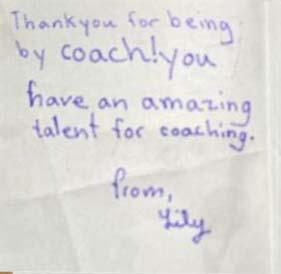 Thankyou for being
by coach!you
have an amazing
talent for coaching.
from,
Lily